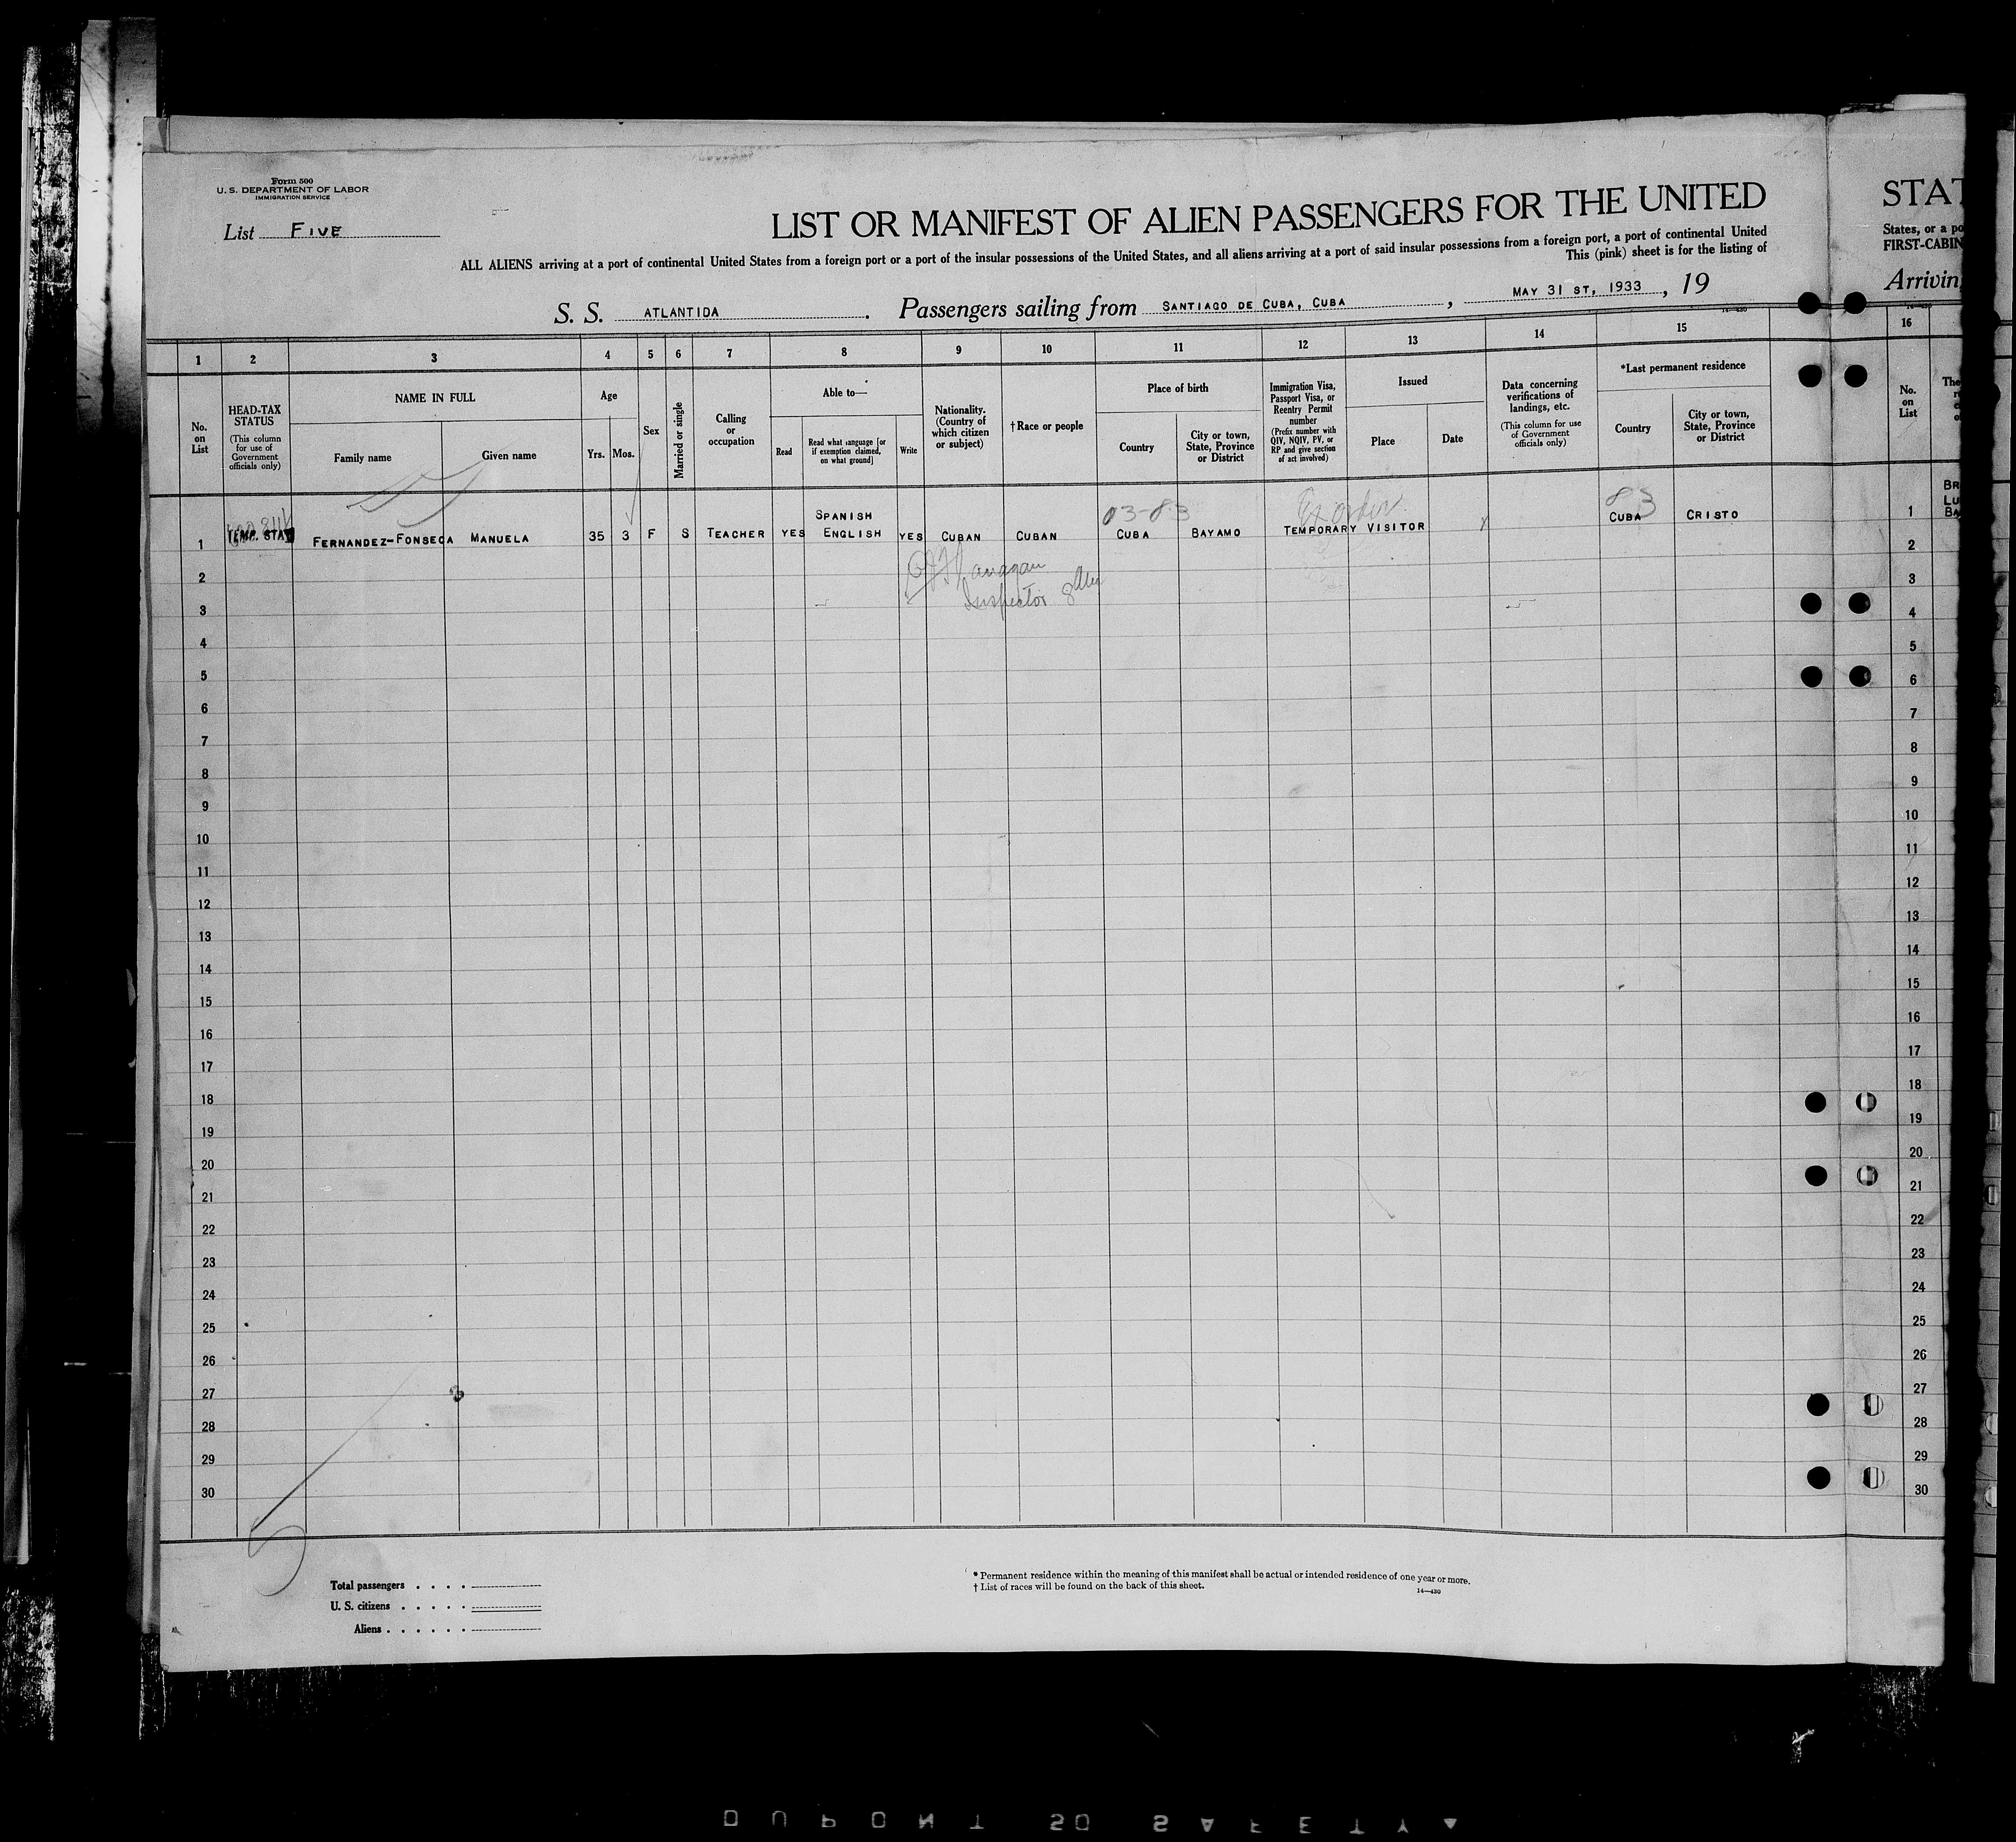 Form 500
U. S. DEPARTMENT OF LABOR
IMMIGRATION SERVICE
List FIVE
LIST OR MANIFEST OF ALIEN PASSENGERS FOR THE UNITED
STAT
ALL ALIENS arriving at a port of continental United States from a foreign port or a port of the insular possessions of the United States, and all aliens arriving at a port of said insular possessions from a foreign port, a port of continental United
States, or a po
This (pink) sheet is for the listing of
FIRST-CABIN
S. S. ATLANTIDA. Passengers sailing from SANTIAGO DE CUBA, CUBA, MAY 31 ST, 1933, 19
Arrivin
1 2 3 4 5 6 7 8 9 10 11 12 13 14 15 16
No. on List
HEAD-TAX STATUS
(This column for use of Government officials only)
NAME IN FULL
Family name
Given name
Age
Yrs.
Mos.
Sex
Married or single
Calling or occupation
Able to—
Read
Read what language [or if exemption claimed, on what ground]
Write
Nationality. (Country of which citizen or subject)
†Race or people
Place of birth
Country
City or town, State, Province or District
Immigration Visa, Passport Visa, or Reentry Permit number
(Prefix number with QIV, NQIV, PV, or RP and give section of act involved)
Issued
Place
Date
Data concerning verifications of landings, etc.
(This column for use of Government officials only)
*Last permanent residence
Country
City or town, State, Province or District
No. on List
03-83
83
1 TEMP. STAY FERNANDEZ-FONSECA MANUELA 35 3 F S TEACHER YES SPANISH ENGLISH YES CUBAN CUBAN CUBA BAYAMO TEMPORARY VISITOR CUBA CRISTO 1
Inspector
2 2
3 3
4 4
5 5
6 6
7 7
8 8
9 9
10 10
11 11
12 12
13 13
14 14
15 15
16 16
17 17
18 18
19 19
20 20
21 21
22 22
23 23
24 24
25 25
26 26
27 27
28 28
29 29
30 30
Total passengers . . . .
U. S. citizens . . . . .
Aliens . . . . . .
* Permanent residence within the meaning of this manifest shall be actual or intended residence of one year or more.
† List of races will be found on the back of this sheet.
14—430
DUPONT 50 SAFETY